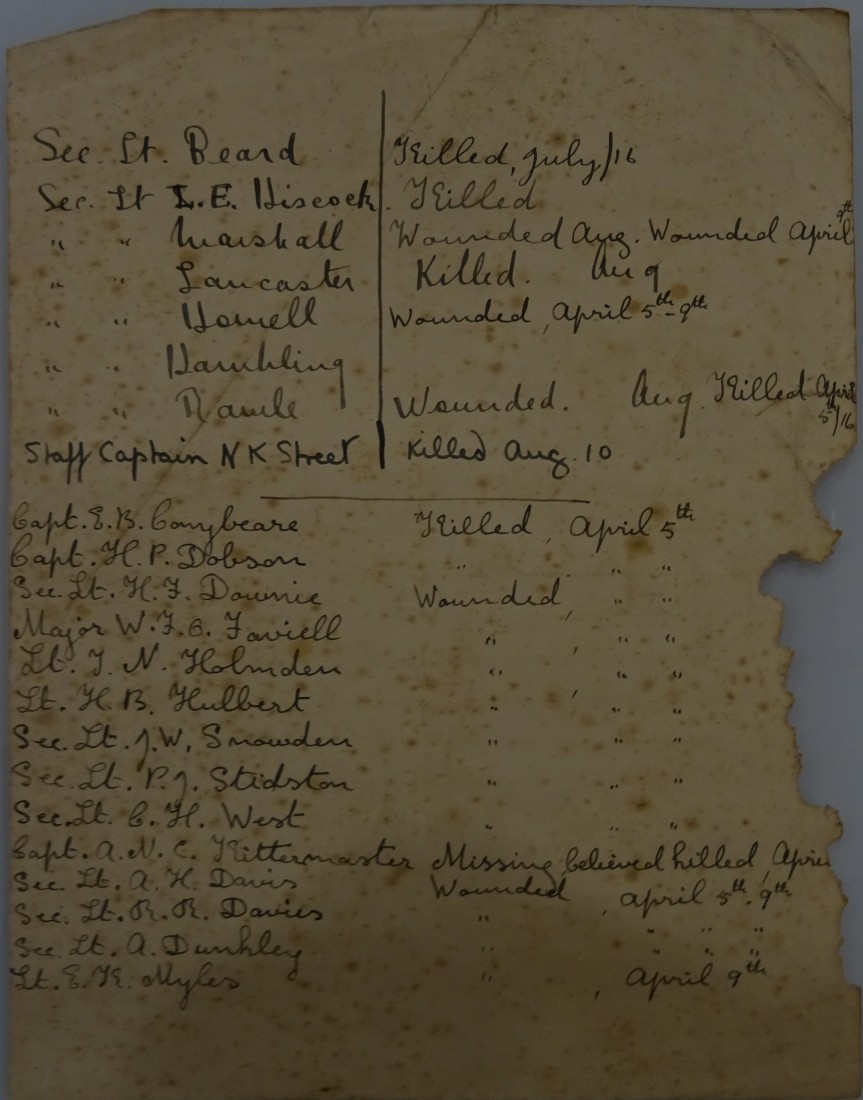 Sec. Lt. Beard Killed, July/16
Sec. Lt L.E. Hiscock. Killed
" " Marshall Wounded Aug. Wounded April 9th
" " Lancaster Killed. Aug
" " Howell Wounded, April 5th-9th
" " Hambling
" " Rawle Wounded. Aug. Killed April 5/16
Staff Captain N K Street Killed Aug. 10
Capt. E.B. Conybeare Killed, April 5th
Capt. H.P. Dobson " , " "
Sec. Lt. H.F. Downie Wounded, " "
Major W.F.O. Faviell " , " "
Lt. F. N. Holmden " , " "
Lt. H.B. Hulbert " " "
Sec. Lt. J.W. Snowden " " "
Sec. Lt. P.J. Stidston " " "
Sec. Lt. C.H. West " " "
Capt. A.N.C. Kittermaster Missing, believed killed, April
Sec. Lt. A.H. Davis Wounded, April 5th-9th
Sec. Lt. R.R. Davies " " " "
Sec. Lt. A. Dunkley " " " "
Lt. E.K. Myles " , April 9th